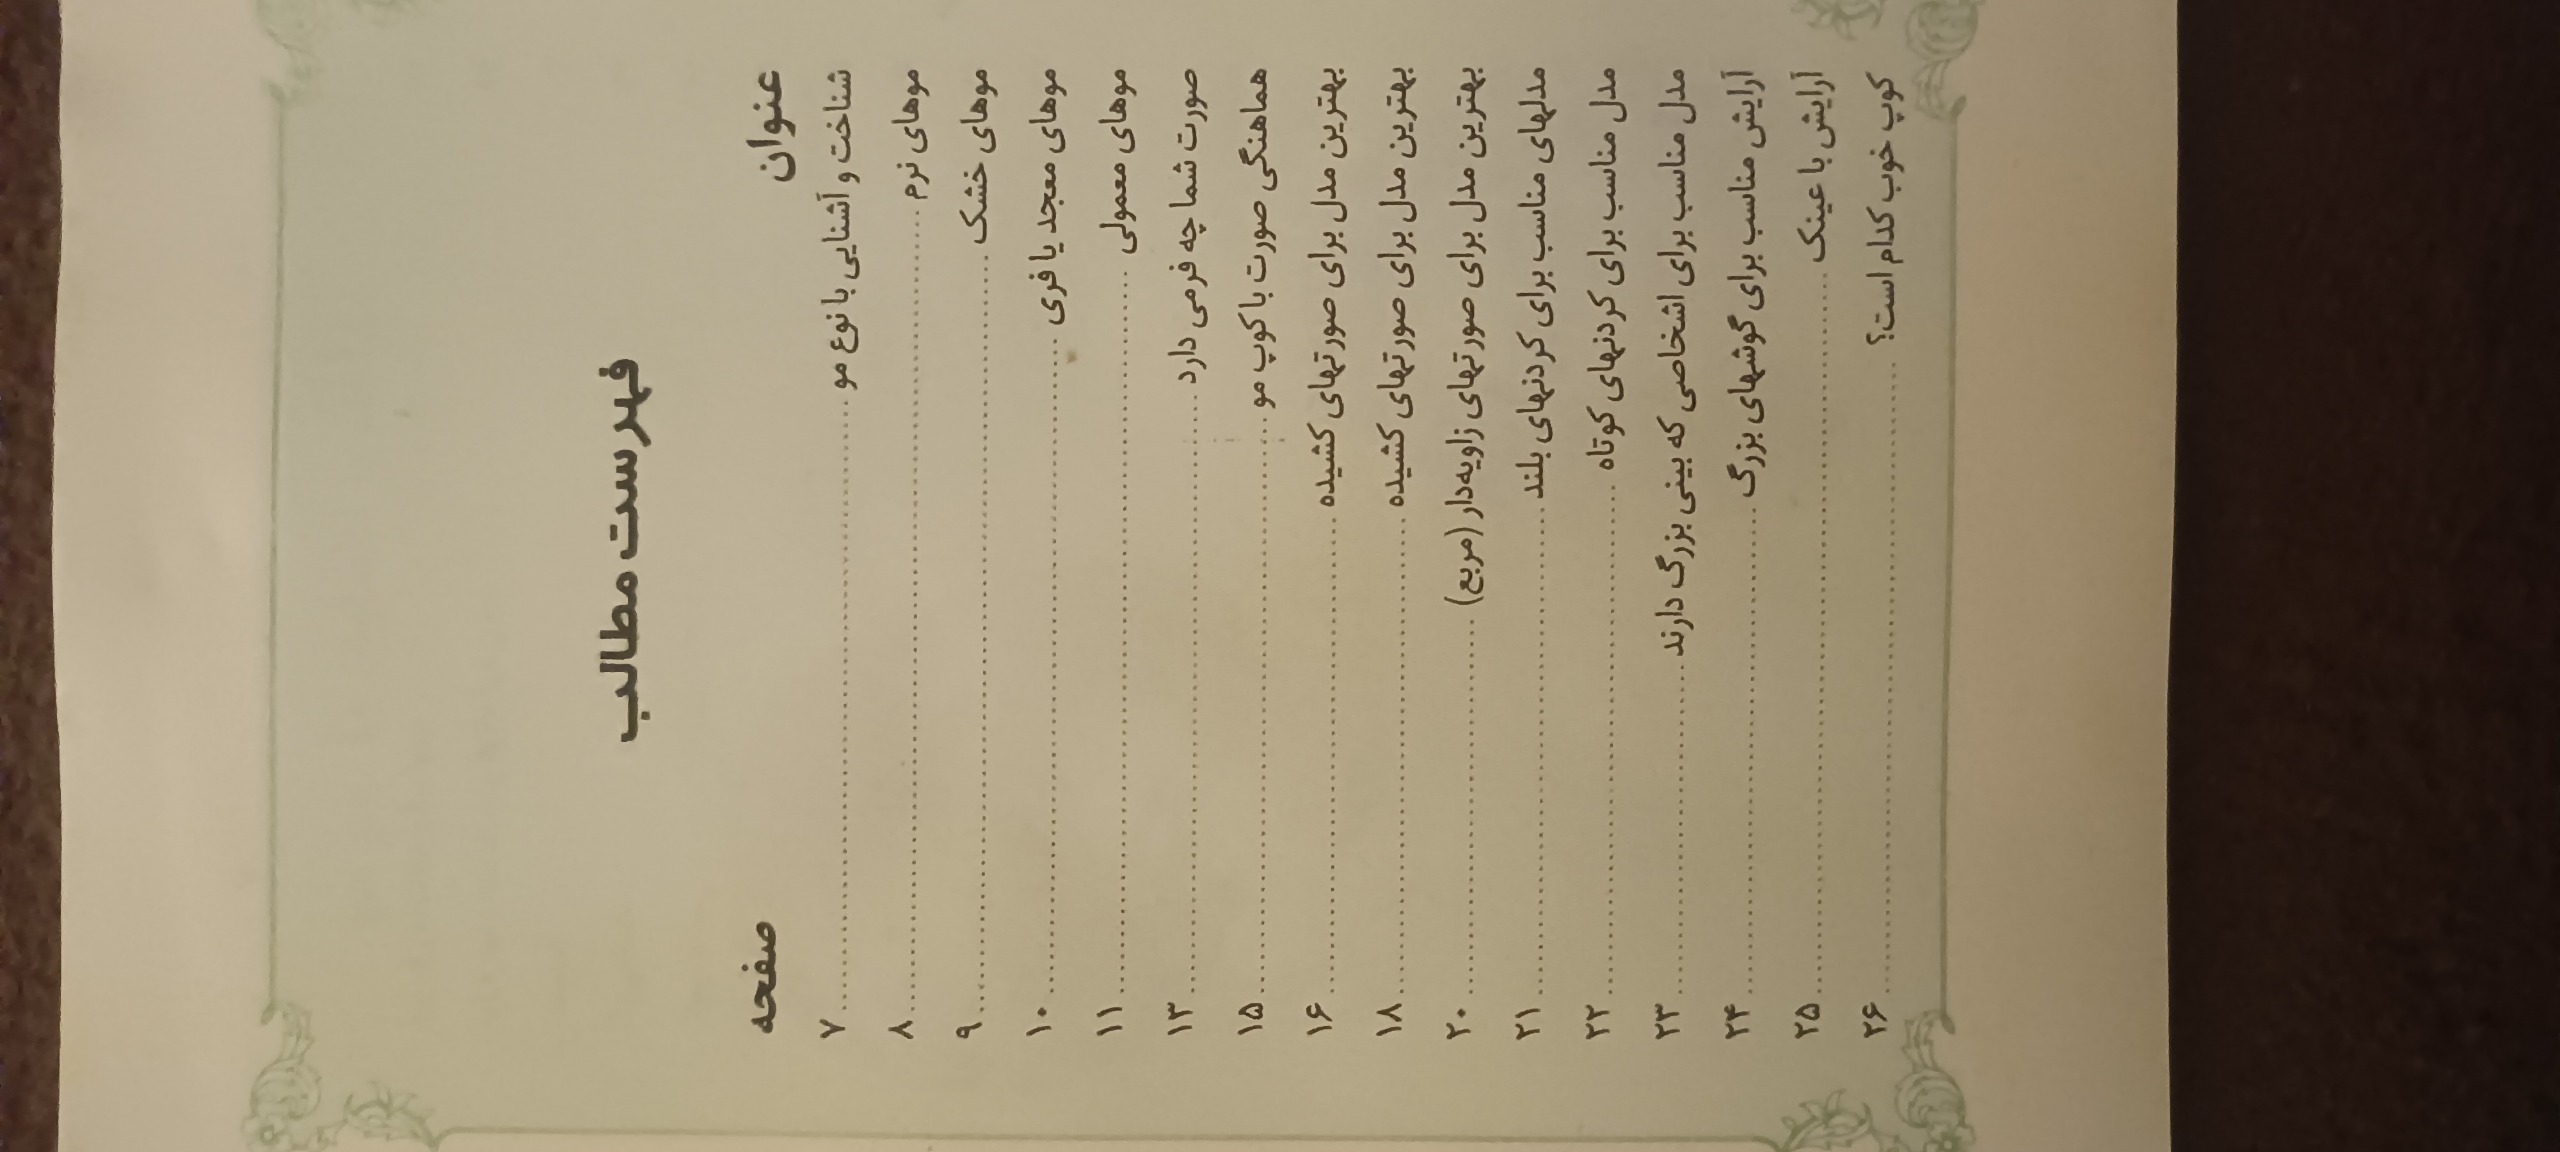 فهرست مطالب
عنوان صفحه
شناخت و آشنایی با نوع مو ۷
موهای نرم ۸
موهای خشک ۹
موهای معجد یا فری ۱۰
موهای معمولی ۱۱
صورت شما چه فرمی دارد ۱۳
هماهنگی صورت با کوپ مو ۱۵
بهترین مدل برای صورتهای کشیده ۱۶
بهترین مدل برای صورتهای کشیده ۱۸
بهترین مدل برای صورتهای زاویه‌دار (مربع) ۲۰
مدلهای مناسب برای کردنهای بلند ۲۱
مدل مناسب برای کردنهای کوتاه ۲۲
مدل مناسب برای اشخاصی که بینی بزرگ دارند ۲۳
آرایش مناسب برای گوشهای بزرگ ۲۴
آرایش با عینک ۲۵
کوپ خوب کدام است؟ ۲۶